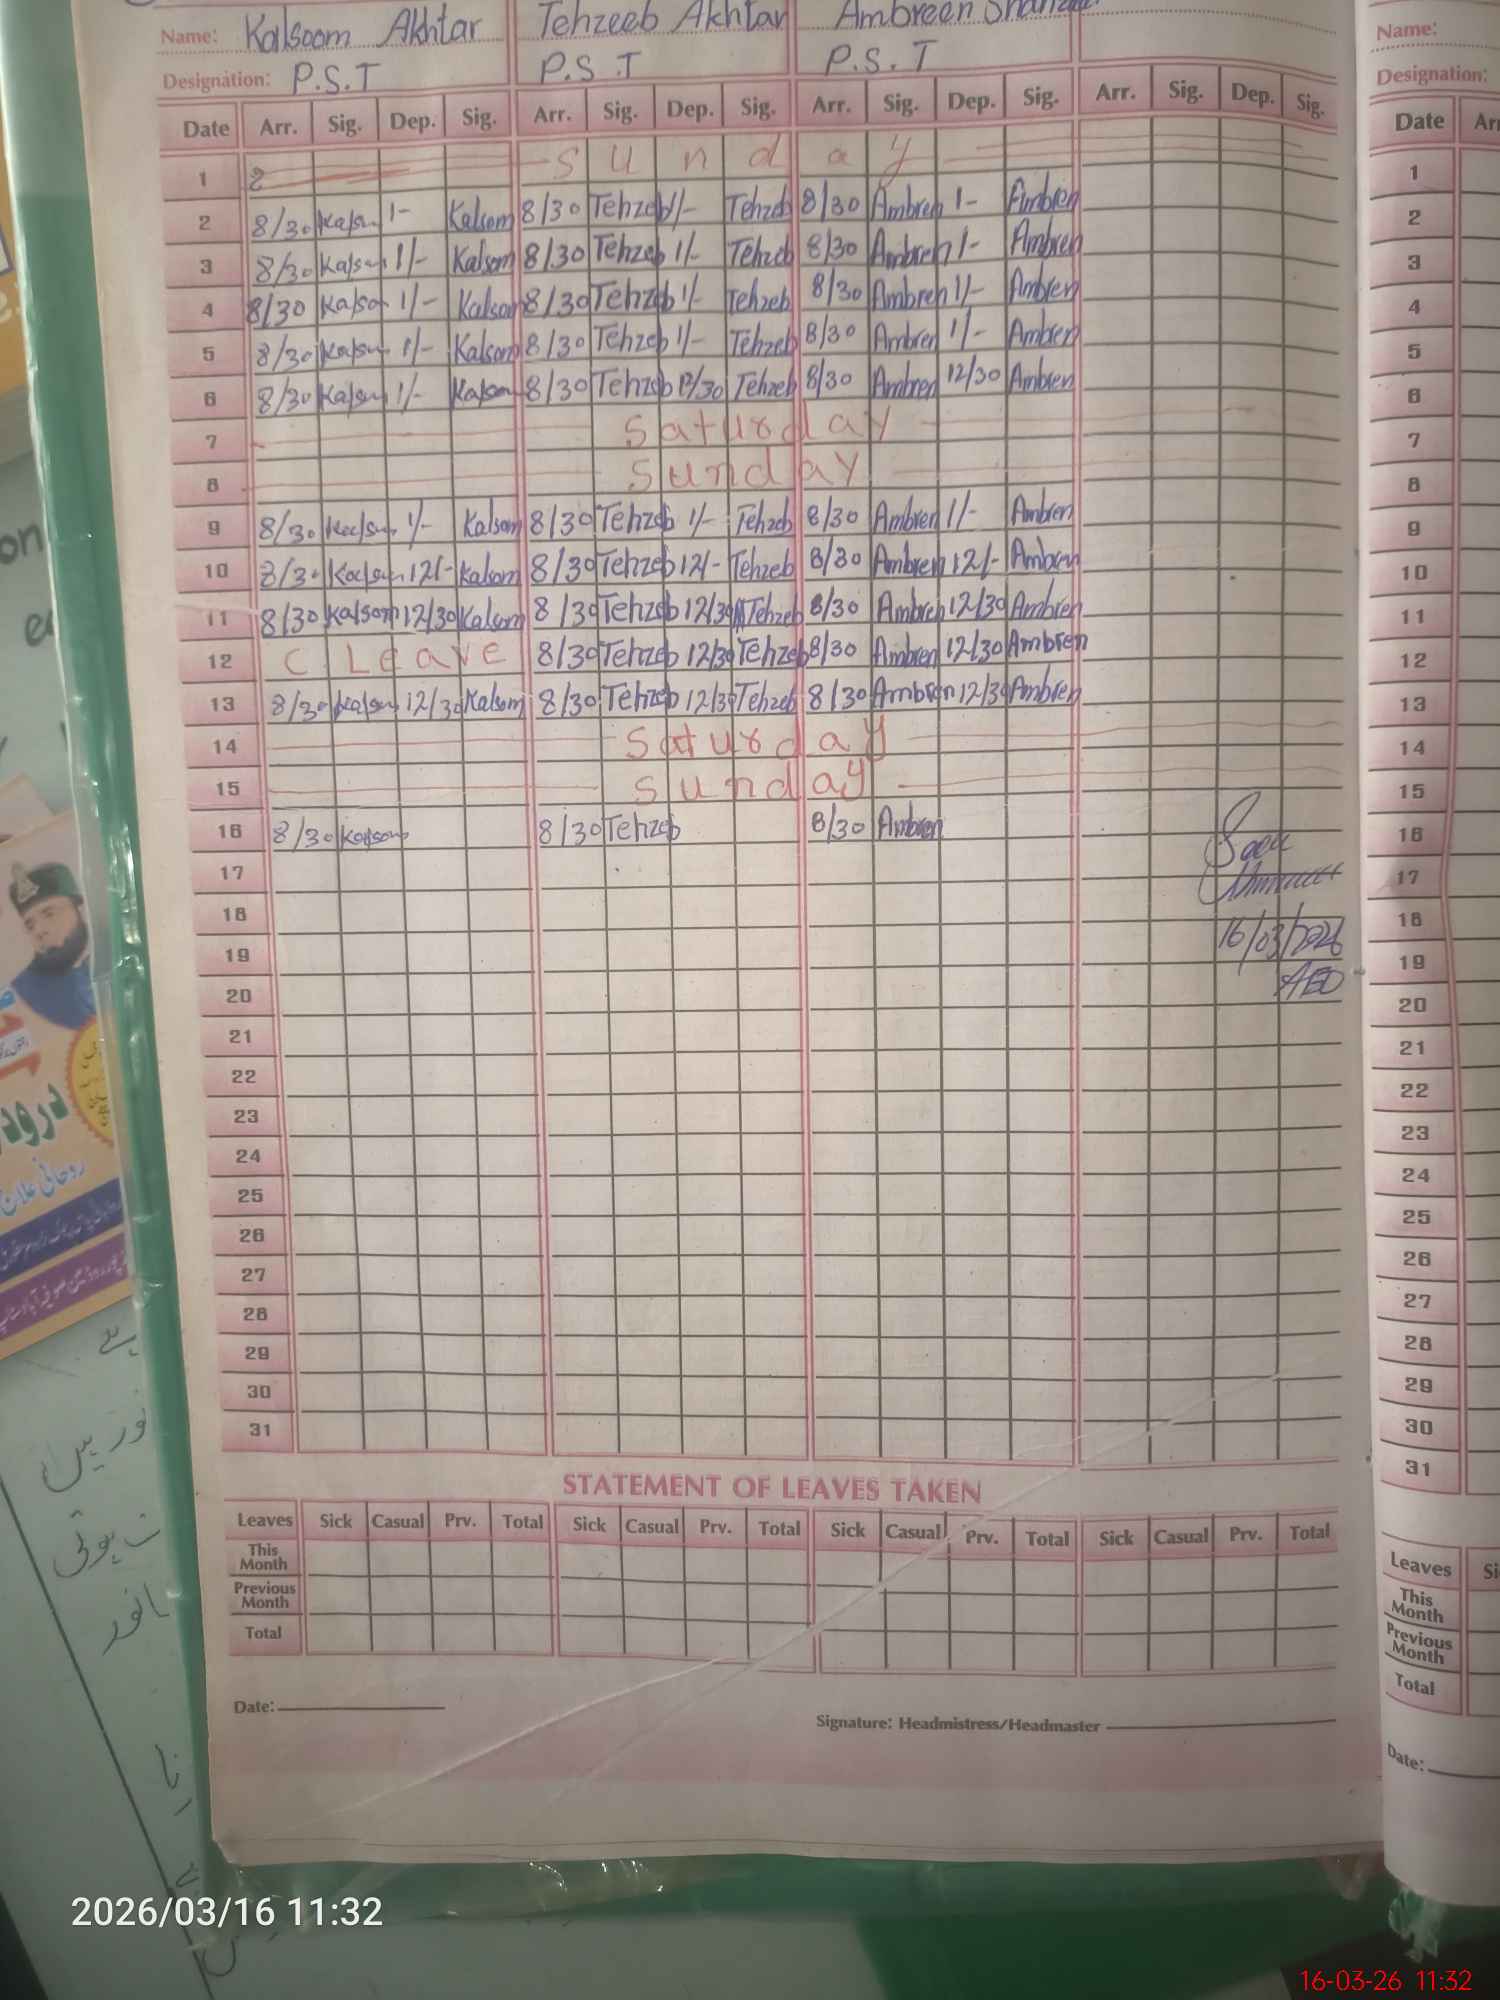 Name: Kalsoom Akhtar Tehzeeb Akhtar Ambreen
Designation: P.S.T P.S.T P.S.T
Date Arr. Sig. Dep. Sig. Arr. Sig. Dep. Sig. Arr. Sig. Dep. Sig. Arr. Sig. Dep. Sig.
1 Sunday
2 8/30 Kalsom 1/- Kalsom 8/30 Tehzeb 1/- Tehzeb 8/30 Ambren 1/- Ambren
3 8/30 Kalsom 1/- Kalsom 8/30 Tehzeb 1/- Tehzeb 8/30 Ambren 1/- Ambren
4 8/30 Kalsom 1/- Kalsom 8/30 Tehzeb 1/- Tehzeb 8/30 Ambren 1/- Ambren
5 8/30 Kalsom 1/- Kalsom 8/30 Tehzeb 1/- Tehzeb 8/30 Ambren 1/- Ambren
6 8/30 Kalsom 1/- Kalsom 8/30 Tehzeb 12/30 Tehzeb 8/30 Ambren 12/30 Ambren
7 Saturday
8 Sunday
9 8/30 Kalsom 1/- Kalsom 8/30 Tehzeb 1/- Tehzeb 8/30 Ambren 1/- Ambren
10 8/30 Kalsom 12/- Kalsom 8/30 Tehzeb 12/- Tehzeb 8/30 Ambren 12/- Ambren
11 8/30 Kalsom 12/30 Kalsom 8/30 Tehzeb 12/30 Tehzeb 8/30 Ambren 12/30 Ambren
12 C Leave 8/30 Tehzeb 12/30 Tehzeb 8/30 Ambren 12/30 Ambren
13 8/30 Kalsom 12/30 Kalsom 8/30 Tehzeb 12/30 Tehzeb 8/30 Ambren 12/30 Ambren
14 Saturday
15 Sunday
16 8/30 Kalsom 8/30 Tehzeb 8/30 Ambren
17
18 16/03/2026
19
20 AEO
21
22
23
24
25
26
27
28
29
30
31
STATEMENT OF LEAVES TAKEN
Leaves Sick Casual Prv. Total Sick Casual Prv. Total Sick Casual Prv. Total Sick Casual Prv. Total
This Month
Previous Month
Total
Date:
Signature: Headmistress/Headmaster
Name:
Designation:
Date
1
2
3
4
5
6
7
8
9
10
11
12
13
14
15
16
17
18
19
20
21
22
23
24
25
26
27
28
29
30
31
Leaves
This Month
Previous Month
Total
Date:
درود
روحانی علاج
2026/03/16 11:32
16-03-26 11:32